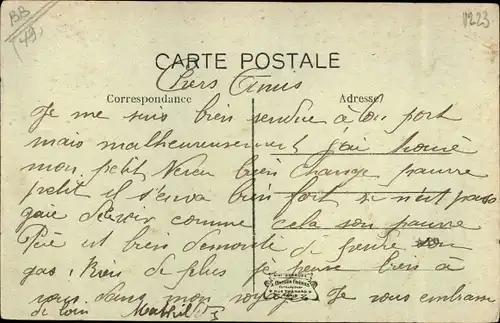 BB
(49)
V223
CARTE POSTALE
Correspondance
Adresse
Chers Amis
Je me suis bien rendue à bon port
mais malheureusement j'ai trouvé
mon petit Neveu bien changé pauvre
petit il s'en va bien fort se n'est pas
gaie de voir comme cela son pauvre
Père est bien démonté de genre
gas. Rien de plus je pense bien à
vous dans mon voyage. Je vous embrasse
de loin